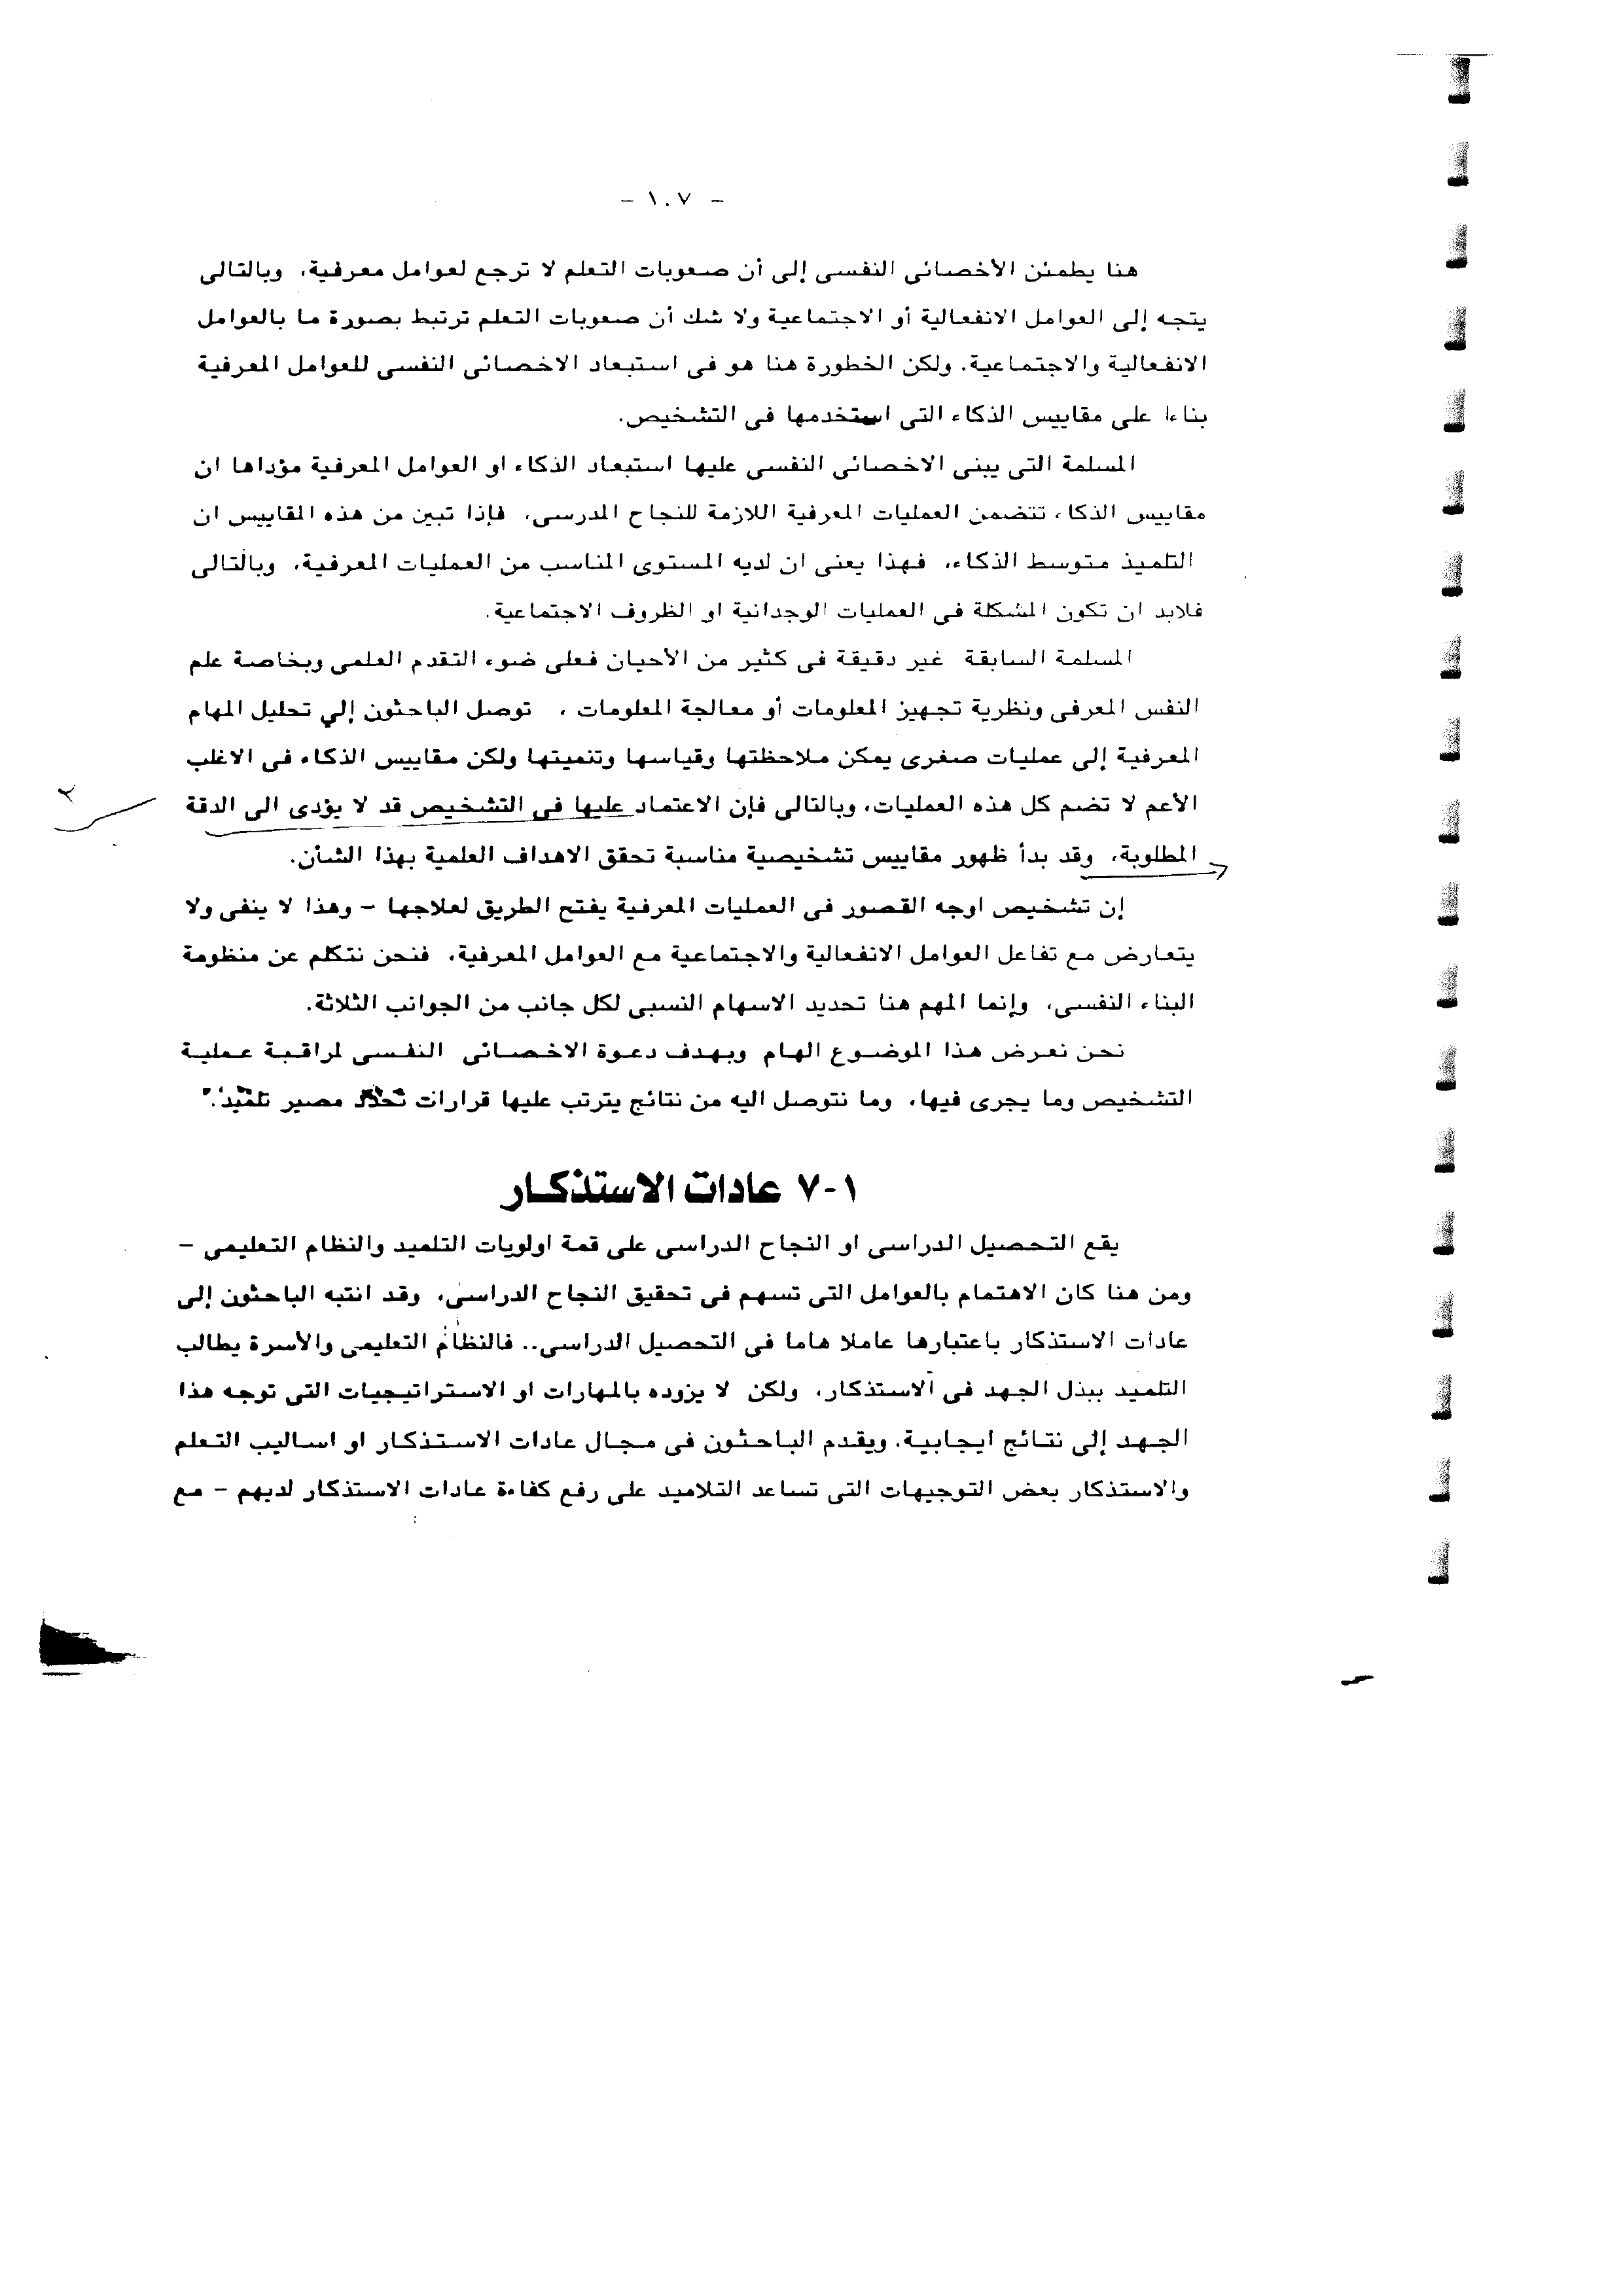 - ١٠٧ -
هنا يطمئن الأخصائى النفسى إلى أن صعوبات التعلم لا ترجع لعوامل معرفية، وبالتالى
يتجه إلى العوامل الانفعالية أو الاجتماعية ولا شك أن صعوبات التعلم ترتبط بصورة ما بالعوامل
الانفعالية والاجتماعية. ولكن الخطورة هنا هو فى استبعاد الاخصائى النفسى للعوامل المعرفية
بناءا على مقاييس الذكاء التى استخدمها فى التشخيص.
المسلمة التى يبنى الاخصائى النفسى عليها استبعاد الذكاء او العوامل المعرفية مؤداها ان
مقاييس الذكاء تتضمن العمليات المعرفية اللازمة للنجاح المدرسى، فإذا تبين من هذه المقاييس ان
التلميذ متوسط الذكاء، فهذا يعنى ان لديه المستوى المناسب من العمليات المعرفية، وبالتالى
فلابد ان تكون المشكلة فى العمليات الوجدانية او الظروف الاجتماعية.
المسلمة السابقة غير دقيقة فى كثير من الأحيان فعلى ضوء التقدم العلمى وبخاصة علم
النفس المعرفى ونظرية تجهيز المعلومات أو معالجة المعلومات ، توصل الباحثون إلي تحليل المهام
المعرفية إلى عمليات صغرى يمكن ملاحظتها وقياسها وتنميتها ولكن مقاييس الذكاء فى الاغلب
الأعم لا تضم كل هذه العمليات، وبالتالى فإن الاعتماد عليها فى التشخيص قد لا يؤدى الى الدقة
المطلوبة، وقد بدأ ظهور مقاييس تشخيصية مناسبة تحقق الاهداف العلمية بهذا الشأن.
إن تشخيص اوجه القصور فى العمليات المعرفية يفتح الطريق لعلاجها - وهذا لا ينفى ولا
يتعارض مع تفاعل العوامل الانفعالية والاجتماعية مع العوامل المعرفية، فنحن نتكلم عن منظومة
البناء النفسى، وإنما المهم هنا تحديد الاسهام النسبى لكل جانب من الجوانب الثلاثة.
نحن نعرض هذا الموضوع الهام وبهدف دعوة الاخصائى النفسى لمراقبة عملية
التشخيص وما يجرى فيها، وما نتوصل اليه من نتائج يترتب عليها قرارات تحدد مصير تلميذ.
٧-١ عادات الاستذكار
يقع التحصيل الدراسى او النجاح الدراسى على قمة اولويات التلميد والنظام التعليمى -
ومن هنا كان الاهتمام بالعوامل التى تسهم فى تحقيق النجاح الدراسى، وقد انتبه الباحثون إلى
عادات الاستذكار باعتبارها عاملا هاما فى التحصيل الدراسى.. فالنظام التعليمى والأسرة يطالب
التلميد ببذل الجهد فى الاستذكار، ولكن لا يزوده بالمهارات او الاستراتيجيات التى توجه هذا
الجهد إلى نتائج ايجابية. ويقدم الباحثون فى مجال عادات الاستذكار او اساليب التعلم
والاستذكار بعض التوجيهات التى تساعد التلاميد على رفع كفاءة عادات الاستذكار لديهم - مع